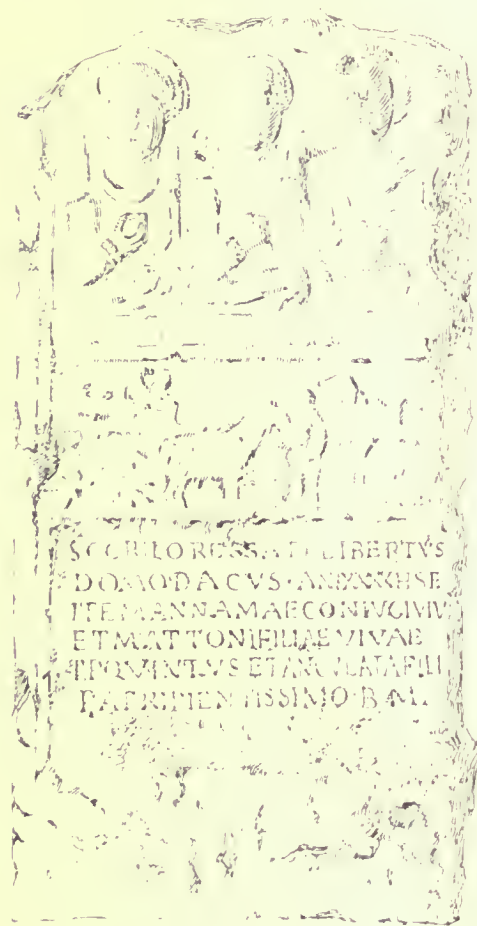 SCORILO RESSATI LIBERTVS
DOMO·DACVS· H S E
ITEM ANNAMAE CONIVGI VIV
ET MATTONI FILIAE VIVAE
QVINTVS ET FILI
PATRI PIENTISSIMO·B·M·